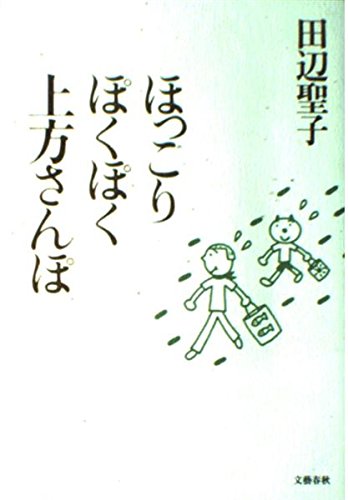 田辺聖子
ほっこり
ぽくぽく
上方さんぽ
文藝春秋